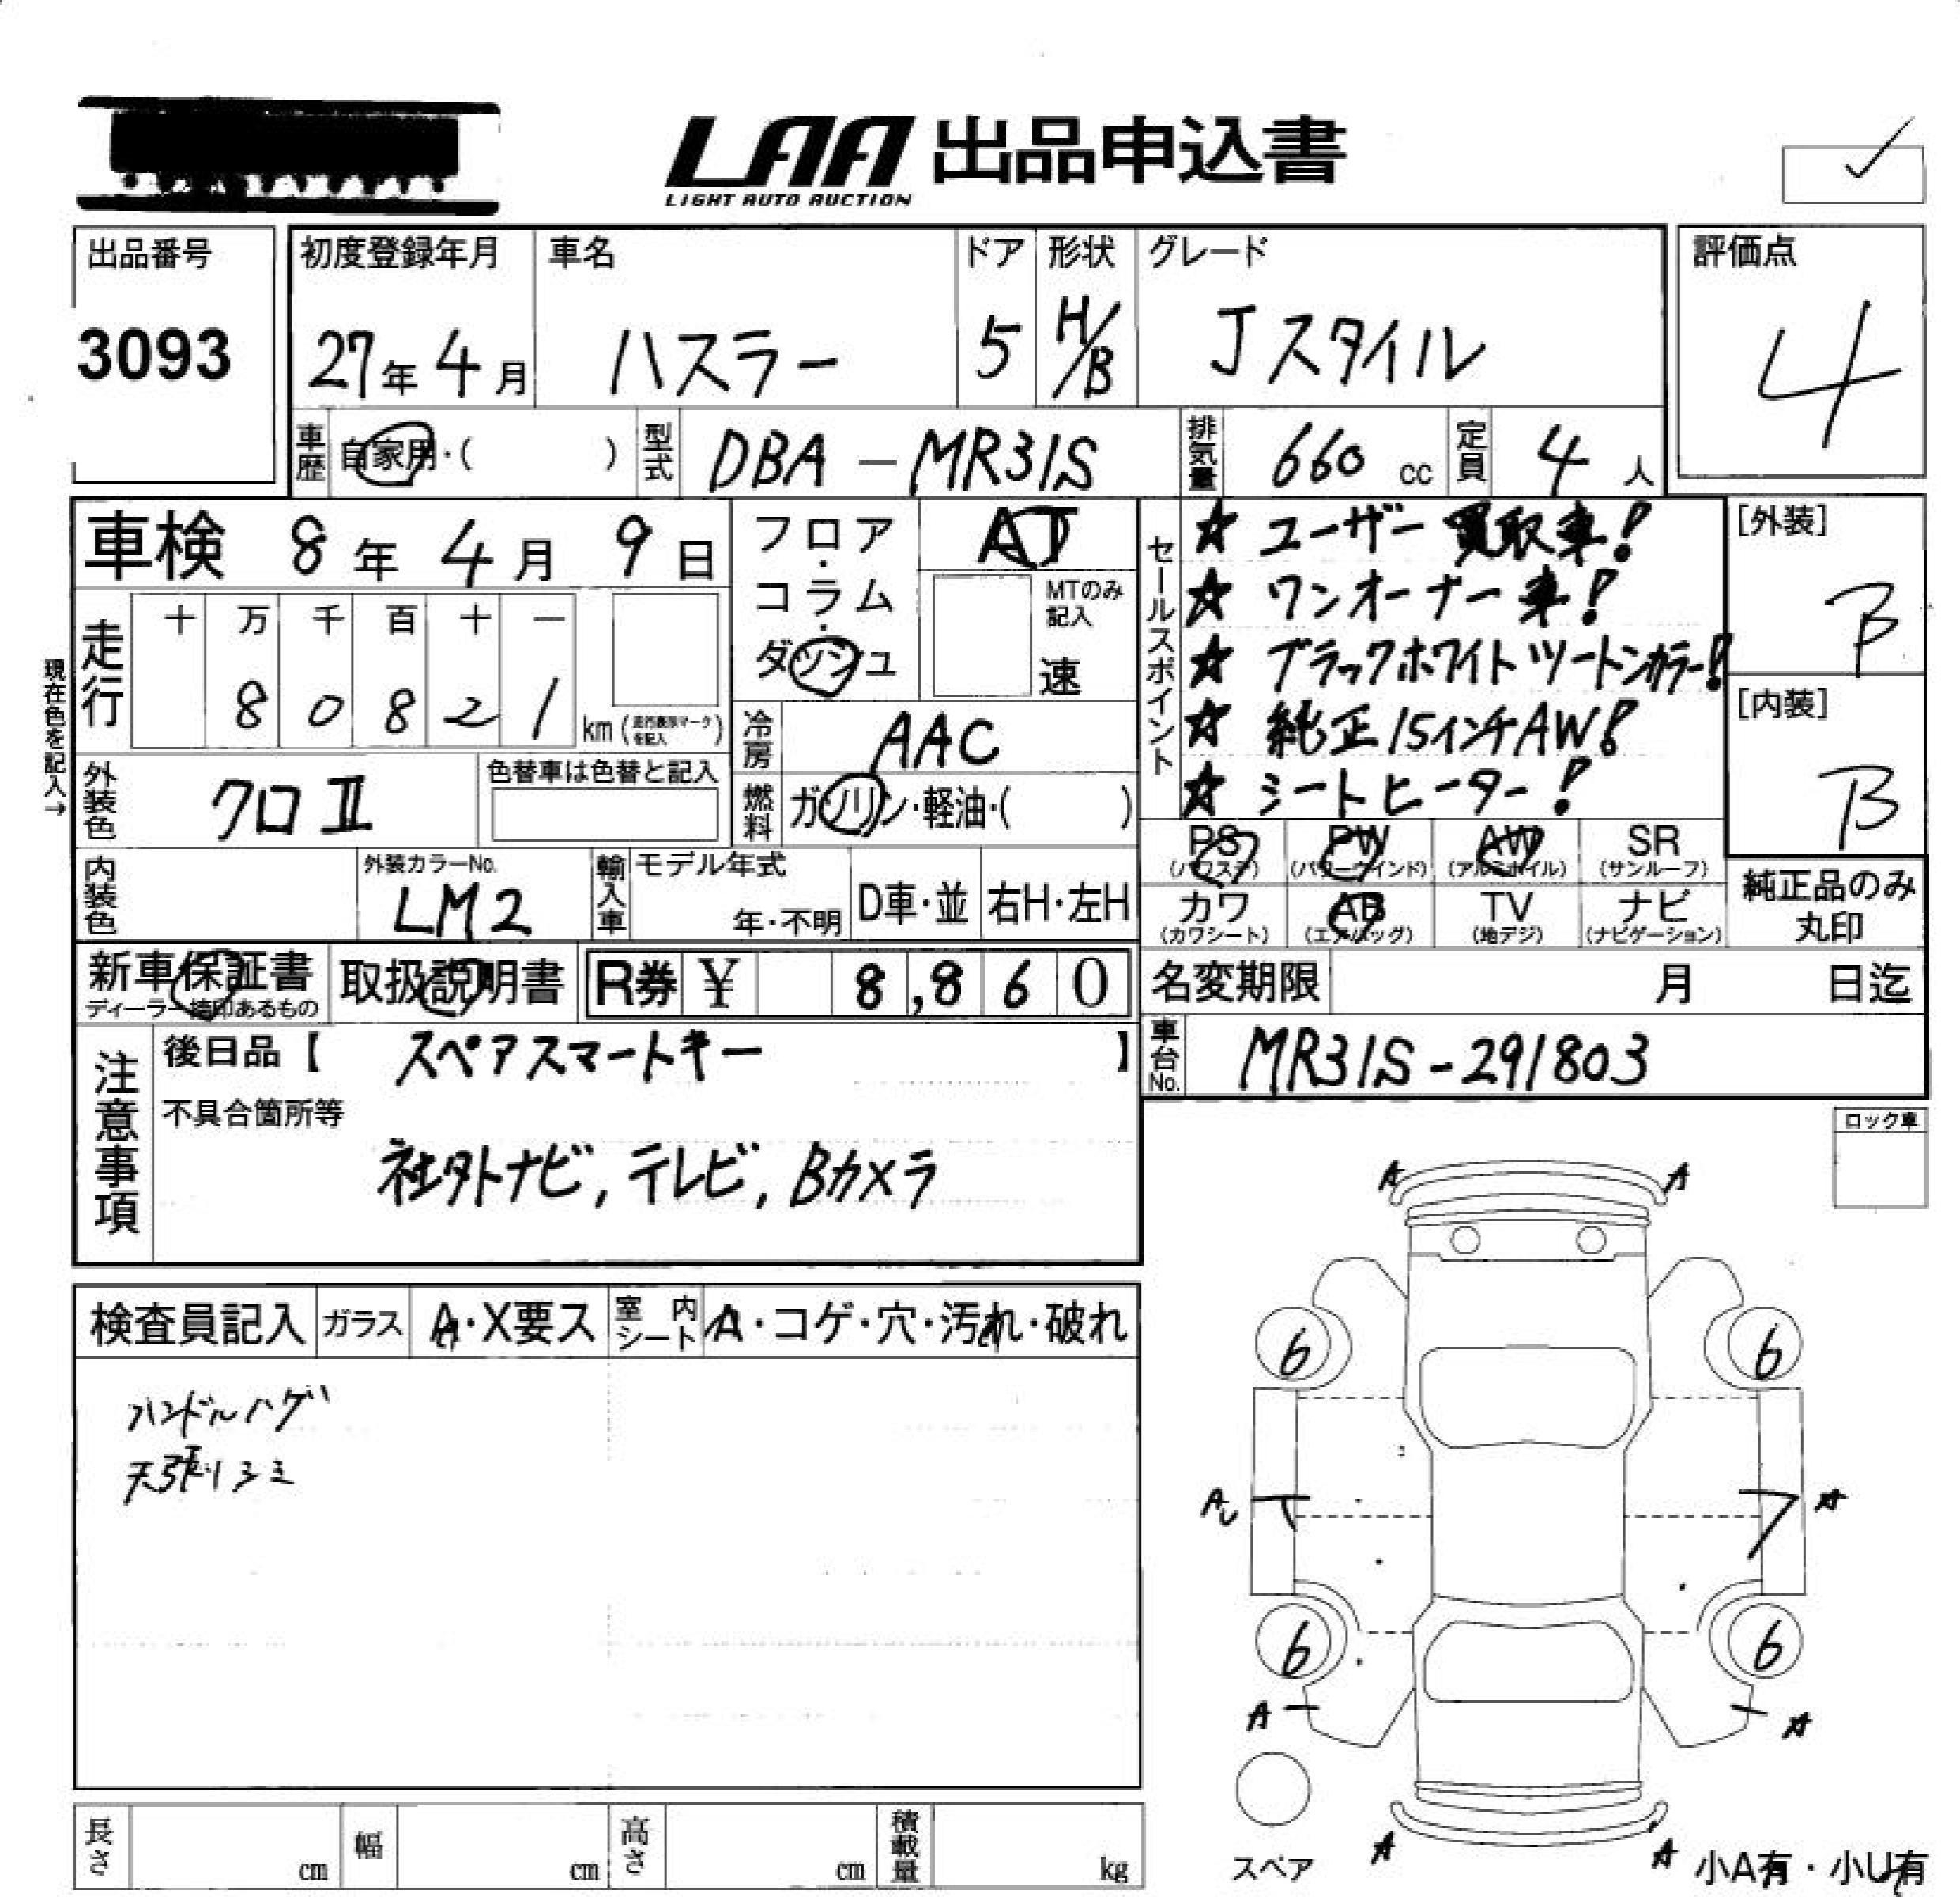 LAA 出品申込書
LIGHT AUTO AUCTION
出品番号
3093
初度登録年月
27年 4月
車名
ハスラー
ドア
5
形状
H/B
グレード
Jスタイル
評価点
4
車歴 自家用・( )
型式 DBA-MR31S
排気量 660 cc
定員 4 人
車検 8年 4月 9日
走行
十 万 千 百 十 一
8 0 8 2 1 km
現在色を記入→
外装色 クロⅡ
色替車は色替と記入
内装色
外装カラーNo.
LM2
フロア・コラム・ダッシュ
AT
MTのみ記入
速
冷房 AAC
燃料 ガソリン・軽油・( )
輸入車
モデル年式
年・不明
D車・並
右H・左H
セールスポイント
☆ ユーザー買取車!
☆ ワンオーナー車!
☆ ブラックホワイトツートンカラー!
☆ 純正15インチAW!
☆ シートヒーター!
[外装]
B
[内装]
B
PS (パワステ)
PW (パワーウインド)
AW (アルミホイル)
SR (サンルーフ)
カワ (カワシート)
AB (エアバッグ)
TV (地デジ)
ナビ (ナビゲーション)
純正品のみ
丸印
新車保証書
ディーラー捺印あるもの
取扱説明書
R券 ¥ 8,860
名変期限 月 日迄
車台No. MR31S-291803
注意事項
後日品【 スペアスマートキー 】
不具合箇所等
社外ナビ, テレビ, Bカメラ
ロック車
検査員記入
ガラス A・X要ス
室内シート A・コゲ・穴・汚れ・破れ
ハンドルハゲ
天張りシミ
A A
6 6
A A
6 6
A A
スペア
A A
小A有・小U有
長さ cm
幅 cm
高さ cm
積載量 kg